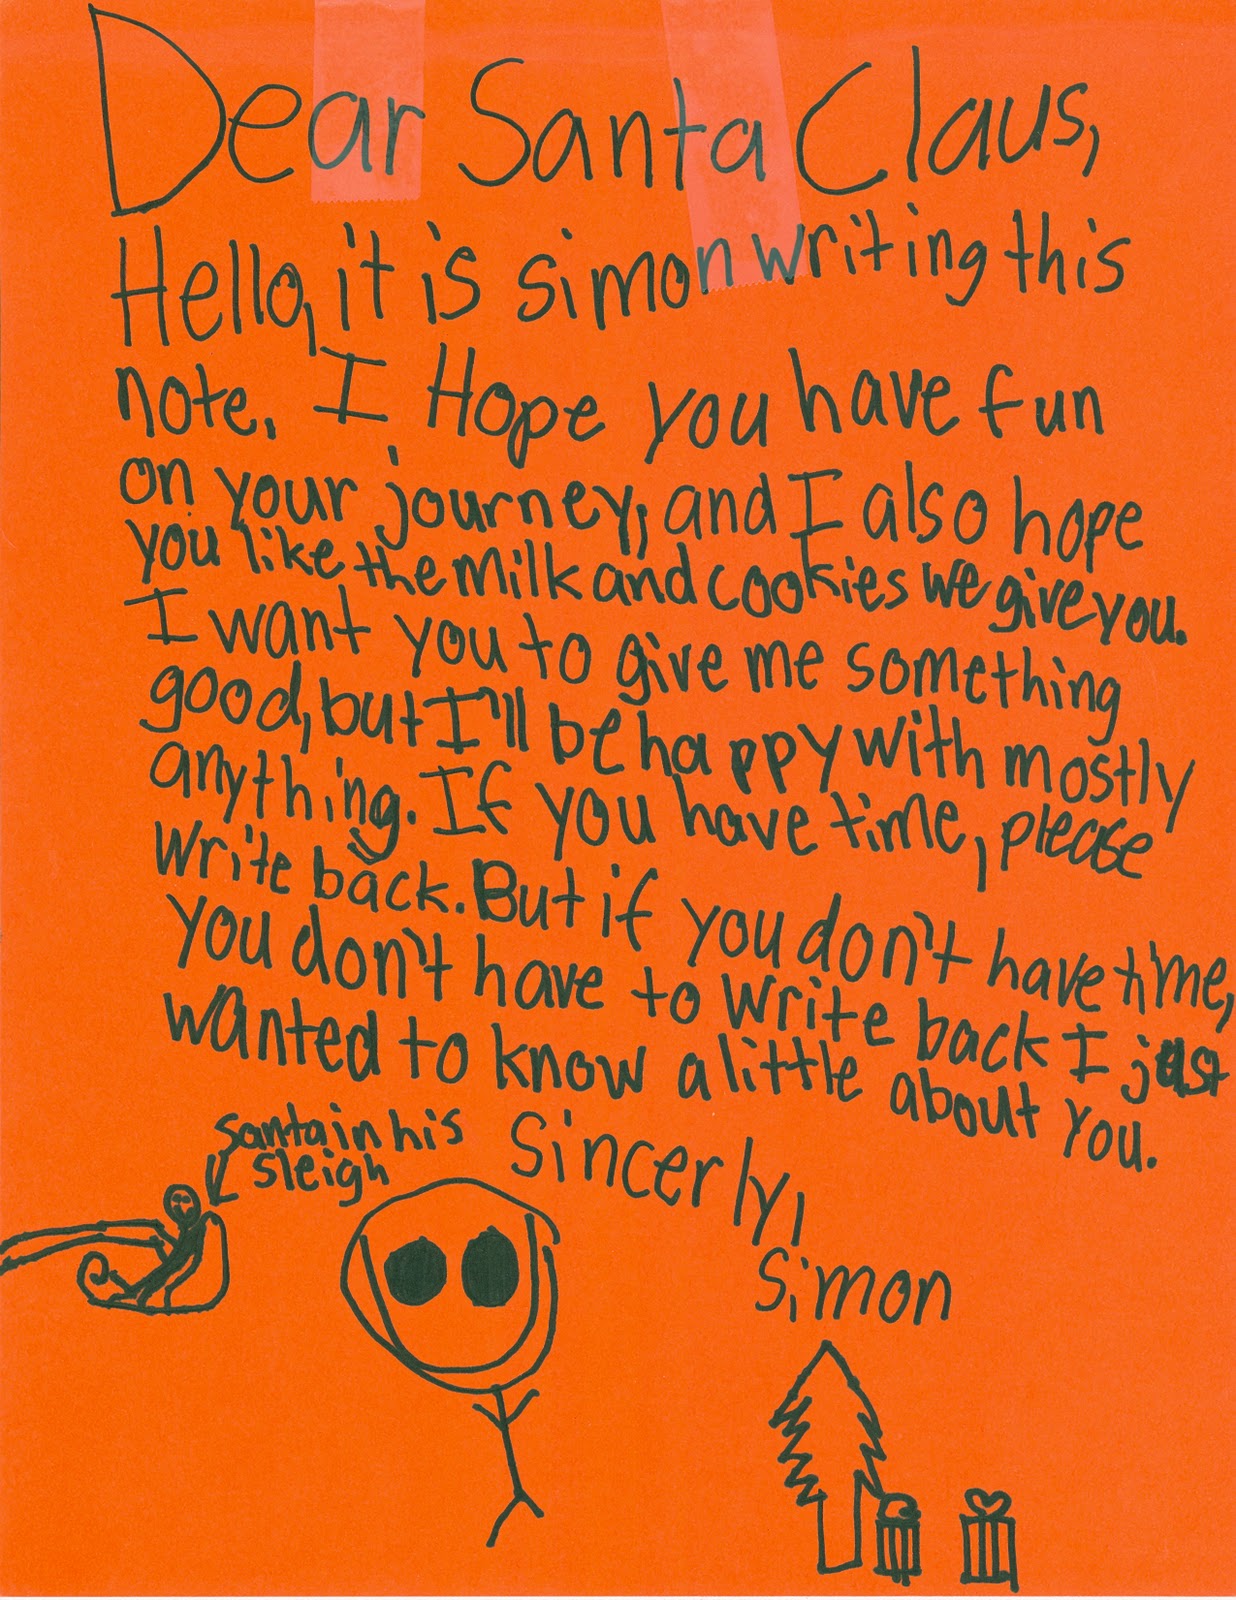 Dear Santa Claus,
Hello, it is simon writing this
note. I Hope you have fun
on your journey, and I also hope
you like the milk and cookies we give you.
I want you to give me something
good, but I'll be happy with mostly
anything. If you have time, please
write back. But if you don't have time,
you don't have to write back I just
wanted to know a little about you.
Sincerly,
Simon
santa in his
sleigh